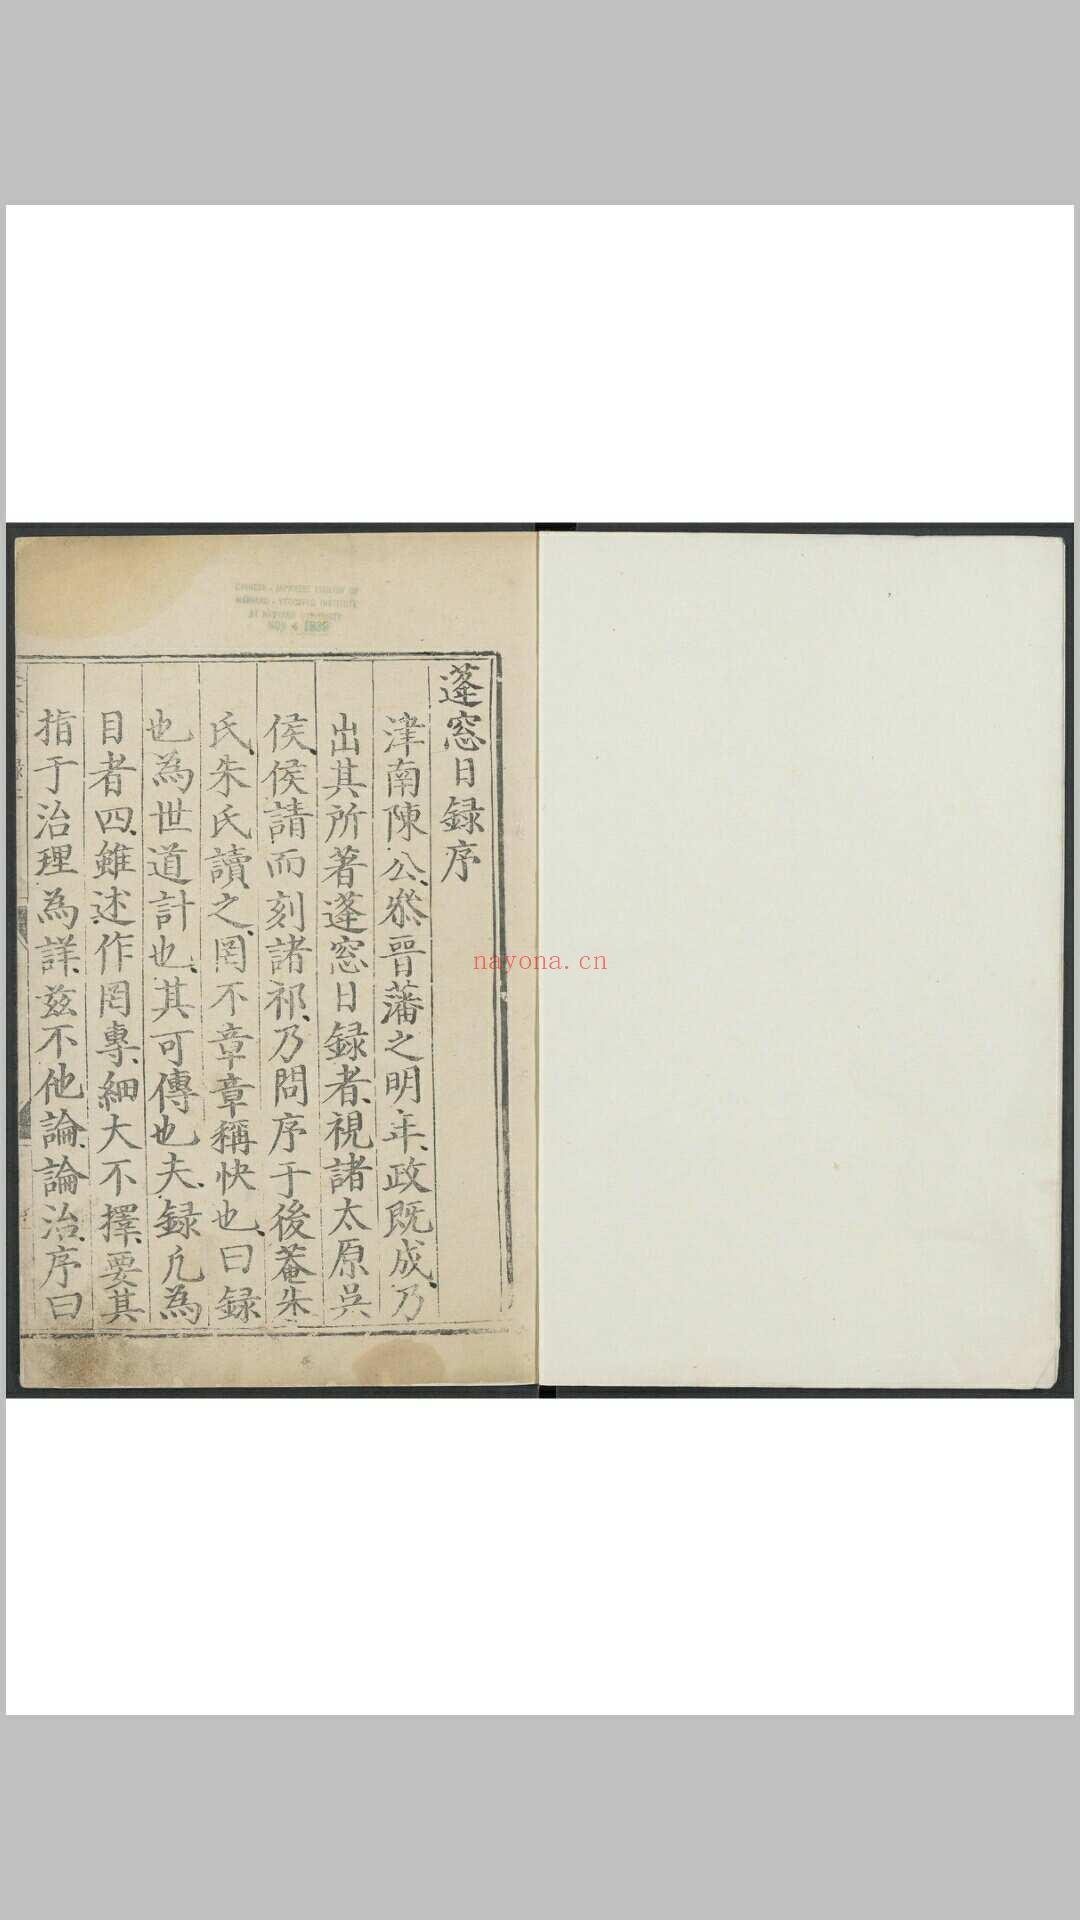 蓬窓日録序
津南陳公叅晉藩之明年政既成乃
出其所著蓬窓日録者視諸太原吳
侯侯請而刻諸祁乃問序于後菴朱
氏朱氏讀之罔不章章稱快也曰録
也為世道計也其可傳也夫録凢為
目者四雖述作罔專細大不擇要其
指于治理為詳兹不他論論治序曰
CHINESE - JAPANESE LIBRARY OF
HARVARD - YENCHING INSTITUTE
AT HARVARD UNIVERSITY
NOV 4 1939
nayona.cn